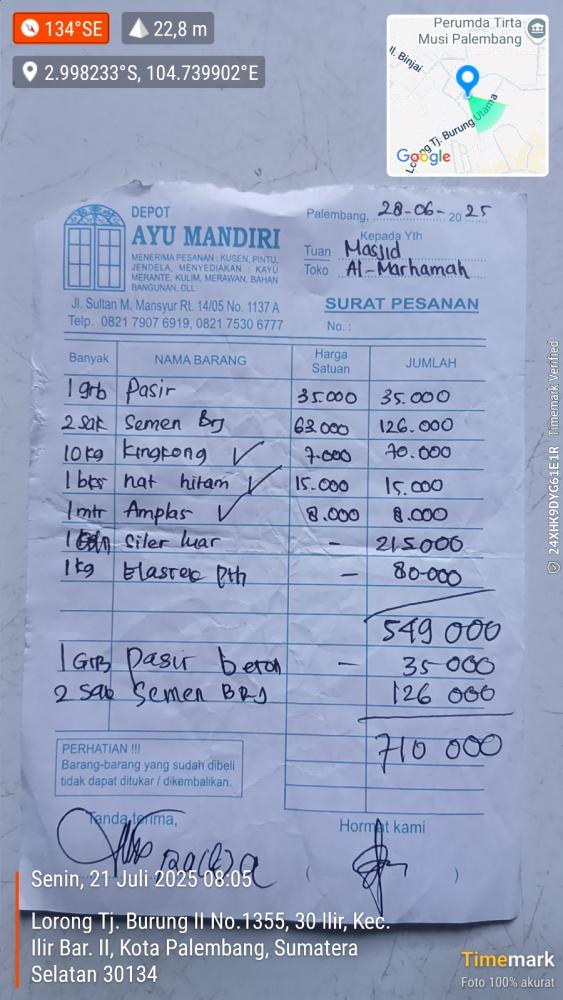 134°SE
22,8 m
2.998233°S, 104.739902°E
Perumda Tirta
Musi Palembang
Il. Binjai
Lorong Tj. Burung Utama
Google
DEPOT
AYU MANDIRI
MENERIMA PESANAN : KUSEN, PINTU,
JENDELA, MENYEDIAKAN : KAYU
MERANTE, KULIM, MERAWAN, BAHAN
BANGUNAN, DLL
Jl. Sultan M. Mansyur Rt. 14/05 No. 1137 A
Telp. 0821 7907 6919, 0821 7530 6777
Palembang, 28-06- 20 25
Kepada Yth
Tuan Masjid
Toko Al-Marhamah
SURAT PESANAN
No. :
Banyak NAMA BARANG Harga Satuan JUMLAH
1 grb Pasir 35.000 35.000
2 sak Semen Brj 63.000 126.000
10 kg Kingkong 7.000 70.000
1 bks nat hitam 15.000 15.000
1 mtr Amplas 8.000 8.000
1 siler luar - 215.000
1 kg Pth - 80.000
549 000
1 GrB Pasir beton - 35 000
2 Sak Semen BRJ 126 000
710 000
PERHATIAN !!!
Barang-barang yang sudah dibeli
tidak dapat ditukar / dikembalikan.
Tanda terima,
Hormat kami
( )
Senin, 21 Juli 2025 08:05
Lorong Tj. Burung II No.1355, 30 Ilir, Kec.
Ilir Bar. II, Kota Palembang, Sumatera
Selatan 30134
Timemark
Foto 100% akurat
24XHK9DYG61E1R Timemark Verified